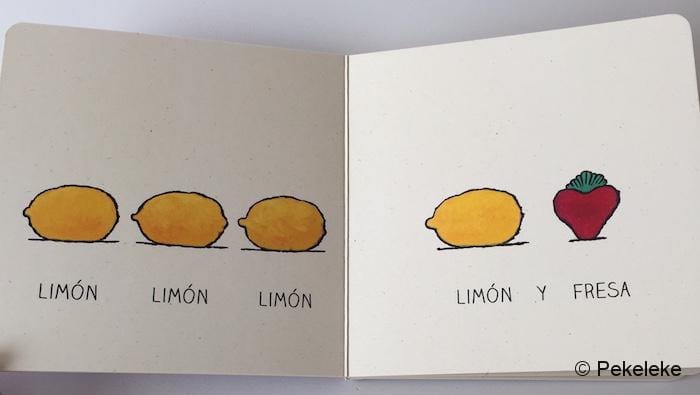 LIMÓN LIMÓN LIMÓN
LIMÓN Y FRESA
© Pekeleke